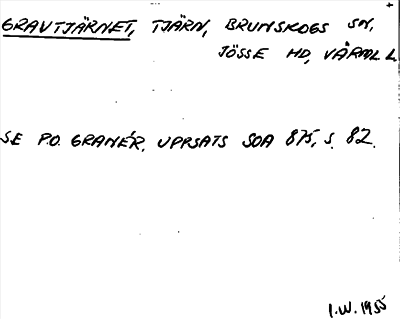 GRAVTJÄRNET, TJÄRN, BRUNSKOGS SN,
JÖSSE HD, VÄRML L
SE P.O. GRANÉR. UPPSATS SOA 875, S. 82.
I.W. 1955